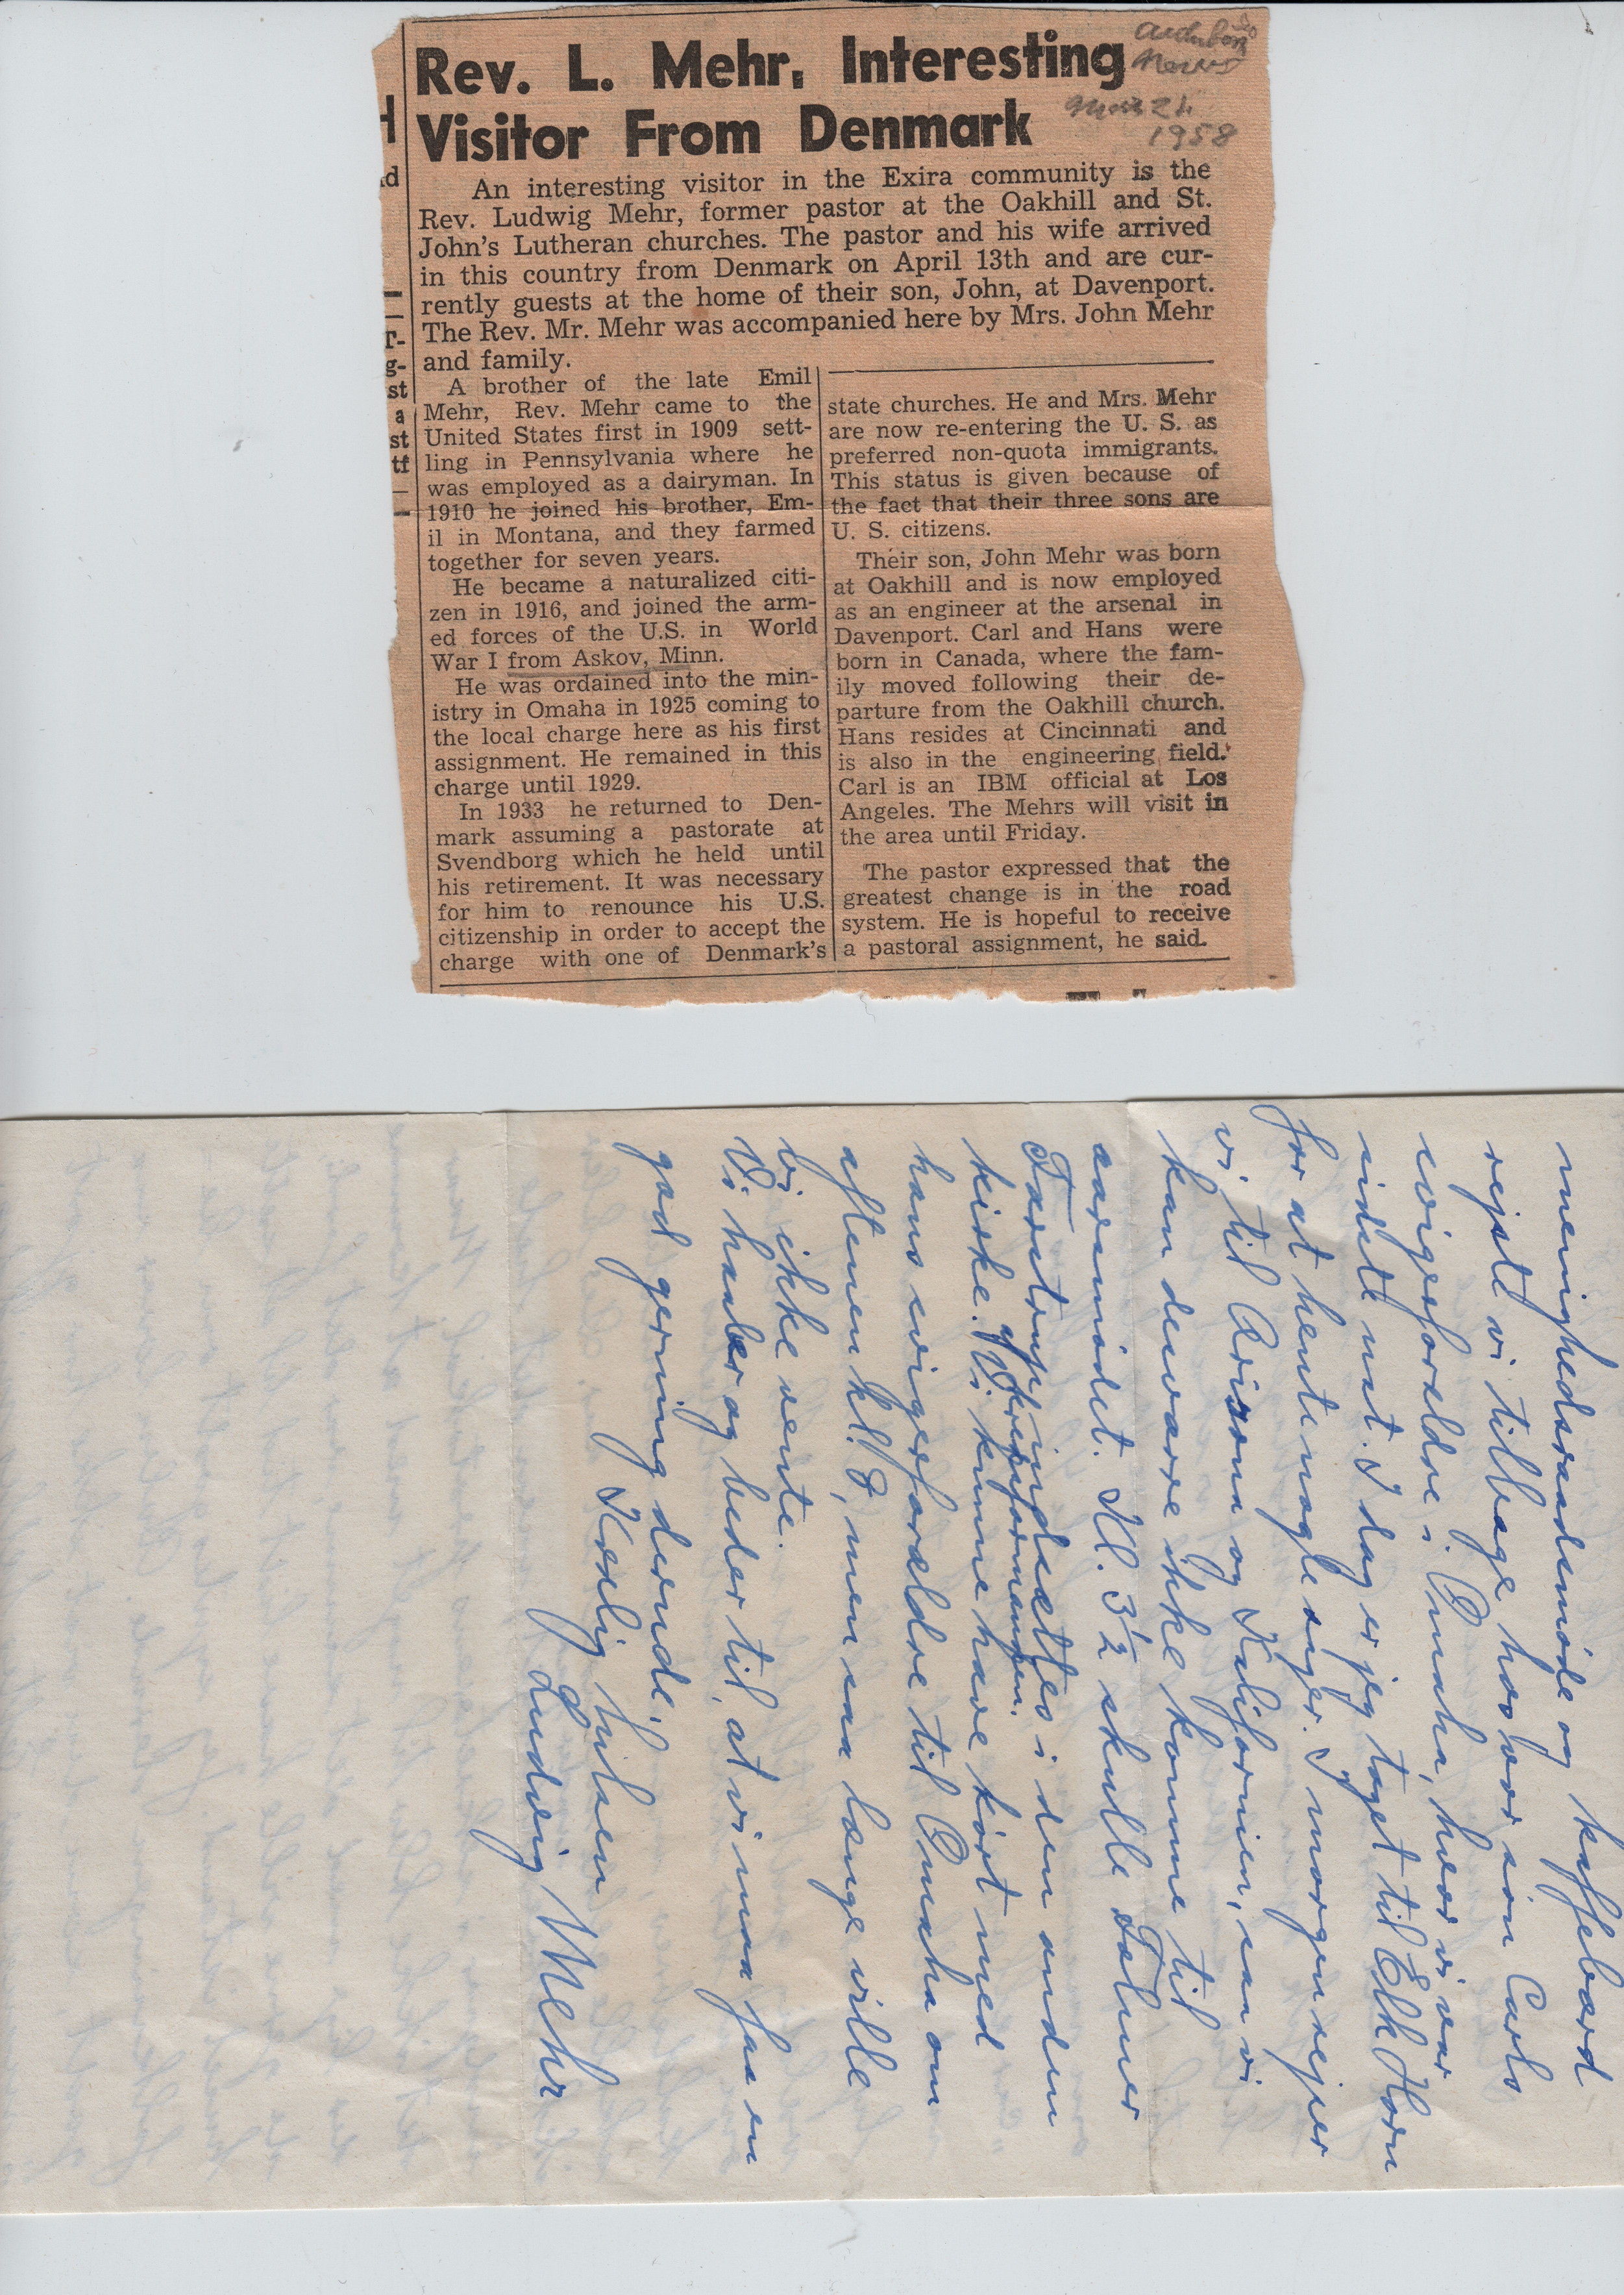 Rev. L. Mehr, Interesting
Visitor From Denmark
Audubon
News
21
1958
An interesting visitor in the Exira community is the
Rev. Ludwig Mehr, former pastor at the Oakhill and St.
John's Lutheran churches. The pastor and his wife arrived
in this country from Denmark on April 13th and are cur-
rently guests at the home of their son, John, at Davenport.
The Rev. Mr. Mehr was accompanied here by Mrs. John Mehr
and family.
A brother of the late Emil
Mehr, Rev. Mehr came to the
United States first in 1909 sett-
ling in Pennsylvania where he
was employed as a dairyman. In
1910 he joined his brother, Em-
il in Montana, and they farmed
together for seven years.
He became a naturalized citi-
zen in 1916, and joined the arm-
ed forces of the U.S. in World
War I from Askov, Minn.
He was ordained into the min-
istry in Omaha in 1925 coming to
the local charge here as his first
assignment. He remained in this
charge until 1929.
In 1933 he returned to Den-
mark assuming a pastorate at
Svendborg which he held until
his retirement. It was necessary
for him to renounce his U.S.
citizenship in order to accept the
charge with one of Denmark's
state churches. He and Mrs. Mehr
are now re-entering the U. S. as
preferred non-quota immigrants.
This status is given because of
the fact that their three sons are
U. S. citizens.
Their son, John Mehr was born
at Oakhill and is now employed
as an engineer at the arsenal in
Davenport. Carl and Hans were
born in Canada, where the fam-
ily moved following their de-
parture from the Oakhill church.
Hans resides at Cincinnati and
is also in the engineering field.
Carl is an IBM official at Los
Angeles. The Mehrs will visit in
the area until Friday.
The pastor expressed that the
greatest change is in the road
system. He is hopeful to receive
a pastoral assignment, he said.
d
T-
g-
st
a
st
tf
menighedsraadsmöde og kaffebord
rejste vi tilbage hos vor sön Carls
svigerforældre i Omaha, hvor vi var
sidste nat. I dag er jeg taget til Elk Horn
for at hente nogle sager. I morgen rejser
vi til Arizona og Kalifornien, saa vi
kan desværre ikke komme til
aarsmödet. Kl. 3½ skulle Falmer
Farstrup indsættes i den anden
af Kredsformanden.
kirke. Vi kunne have kört med
hans svigerforældre til Omaha om
aftenen kl. 8, men saa længe ville
vi ikke vente.
Vi haaber og beder til, at vi maa faa en
god gerning derude.
Kærlig hilsen
Ludvig Mehr